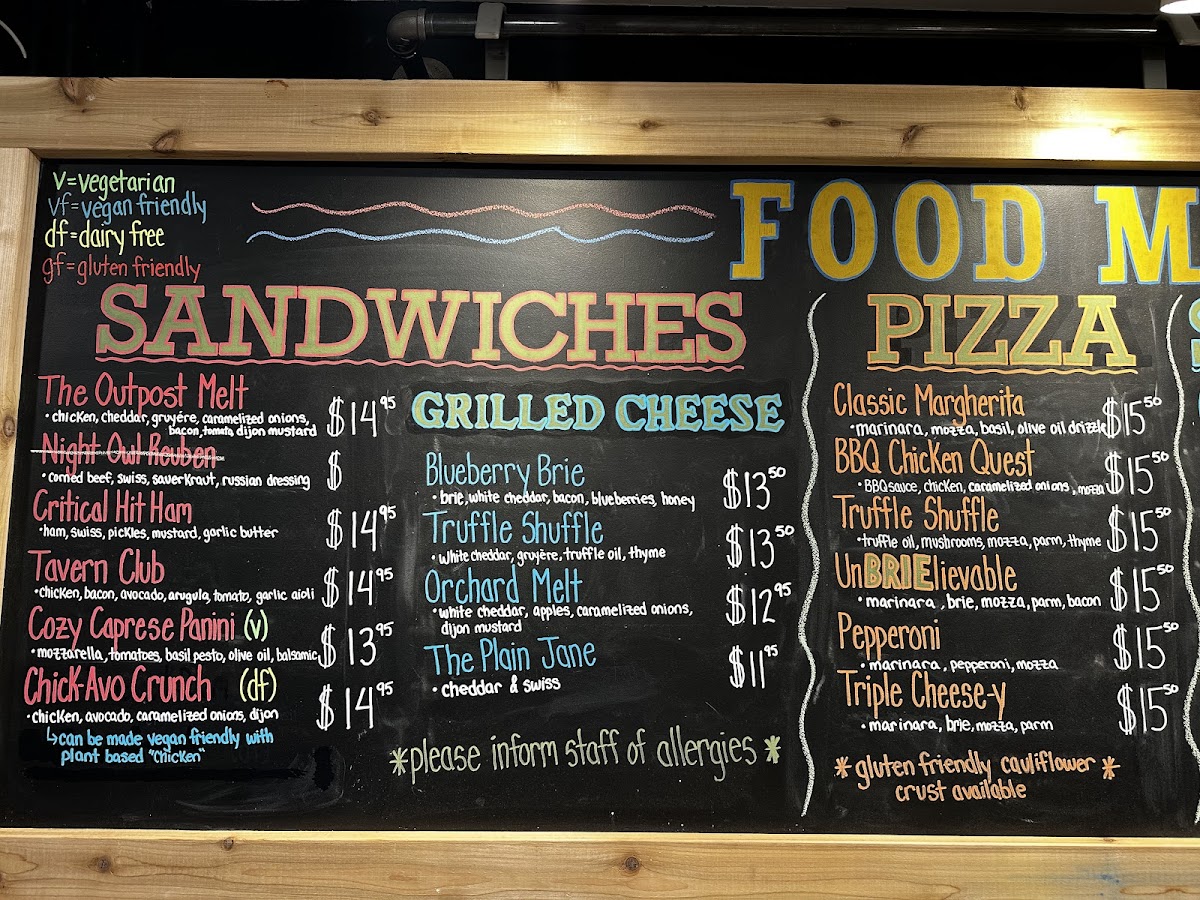 v=vegetarian
vf=vegan friendly
df=dairy free
gf=gluten friendly
FOOD M
SANDWICHES
The Outpost Melt
• chicken, cheddar, gruyére, caramelized onions,
bacon, tomato, dijon mustard
$14.95
Night Owl Reuben
• corned beef, swiss, sauerkraut, russian dressing
$
Critical Hit Ham
• ham, swiss, pickles, mustard, garlic butter
$14.95
Tavern Club
• chicken, bacon, avocado, arugula, tomato, garlic aioli
$14.95
Cozy Caprese Panini (v)
• mozzarella, tomatoes, basil pesto, olive oil, balsamic
$13.95
Chick-Avo Crunch (df)
• chicken, avocado, caramelized onions, dijon
$14.95
↳can be made vegan friendly with
plant based "chicken"
GRILLED CHEESE
Blueberry Brie
• brie, white cheddar, bacon, blueberries, honey
$13.50
Truffle Shuffle
• white cheddar, gruyère, truffle oil, thyme
$13.50
Orchard Melt
• white cheddar, apples, caramelized onions,
dijon mustard
$12.95
The Plain Jane
• cheddar & swiss
$11.95
*please inform staff of allergies*
PIZZA
Classic Margherita
• marinara, mozza, basil, olive oil drizzle
$15.50
BBQ Chicken Quest
• BBQ sauce, chicken, caramelized onions, mozza
$15.50
Truffle Shuffle
• truffle oil, mushrooms, mozza, parm, thyme
$15.50
UnBRIElievable
• marinara, brie, mozza, parm, bacon
$15.50
Pepperoni
• marinara, pepperoni, mozza
$15.50
Triple Cheese-y
• marinara, brie, mozza, parm
$15.50
*gluten friendly cauliflower*
crust available